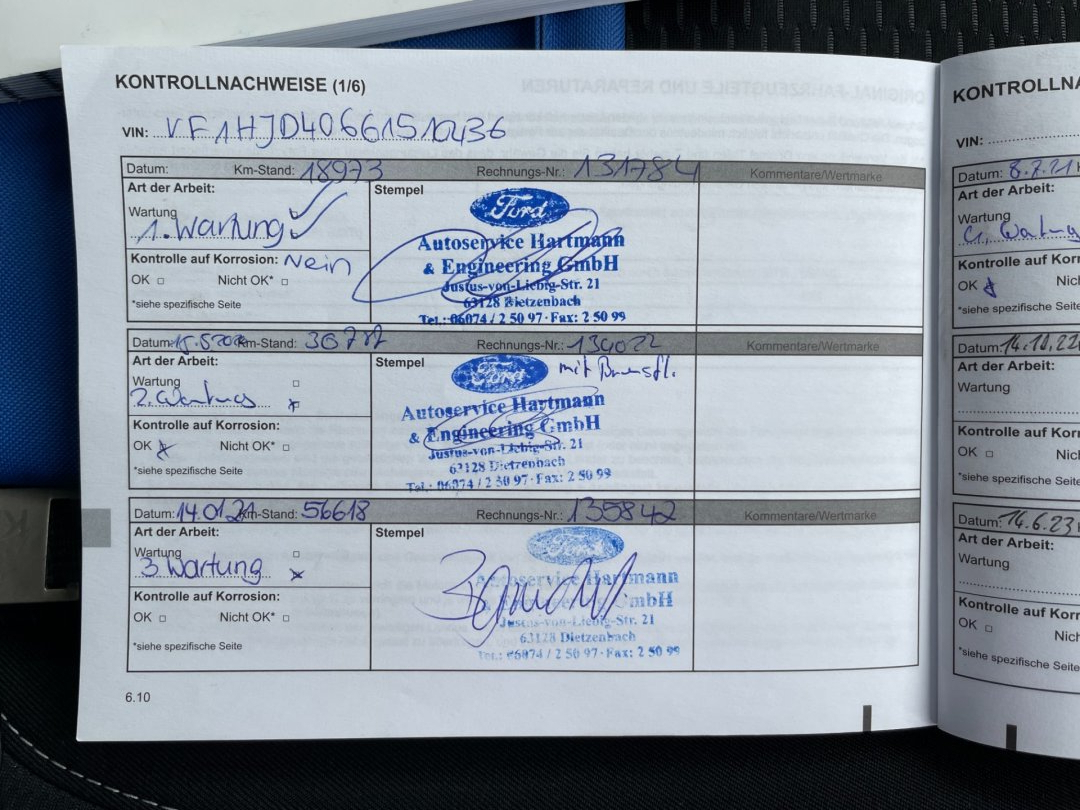 KONTROLLNACHWEISE (1/6)
VIN: VF1HJD40661510436
Datum: Km-Stand: 18973 Rechnungs-Nr.: 131784 Kommentare/Wertmarke
Art der Arbeit: Stempel
Wartung
1. Wartung
Ford
Autoservice Hartmann
& Engineering GmbH
Justus-von-Liebig-Str. 21
63128 Dietzenbach
Tel.: 06074 / 2 50 97 · Fax: 2 50 99
Kontrolle auf Korrosion: Nein
OK Nicht OK*
*siehe spezifische Seite
Datum: Km-Stand: Rechnungs-Nr.: 134022 Kommentare/Wertmarke
Art der Arbeit: Stempel
Wartung
2. Wartung
Ford
mit
Autoservice Hartmann
& Engineering GmbH
Justus-von-Liebig-Str. 21
63128 Dietzenbach
Tel.: 06074 / 2 50 97 · Fax: 2 50 99
Kontrolle auf Korrosion:
OK Nicht OK*
*siehe spezifische Seite
Datum: 14.01.21 Km-Stand: 56618 Rechnungs-Nr.: 135842 Kommentare/Wertmarke
Art der Arbeit: Stempel
Wartung
3 Wartung
Ford
Autoservice Hartmann
& GmbH
Justus-von-Liebig-Str. 21
63128 Dietzenbach
Tel.: 06074 / 2 50 97 · Fax: 2 50 99
Kontrolle auf Korrosion:
OK Nicht OK*
*siehe spezifische Seite
6.10
KONTROLLNA
VIN:
Datum: 8.7.21
Art der Arbeit:
Wartung
4. Wartung
Kontrolle auf Korr
OK Nich
*siehe spezifische Seite
Datum: 14.10.22
Art der Arbeit:
Wartung
Kontrolle auf Korr
OK Nich
*siehe spezifische Seite
Datum: 14.6.23
Art der Arbeit:
Wartung
Kontrolle auf Korr
OK Nich
*siehe spezifische Seite